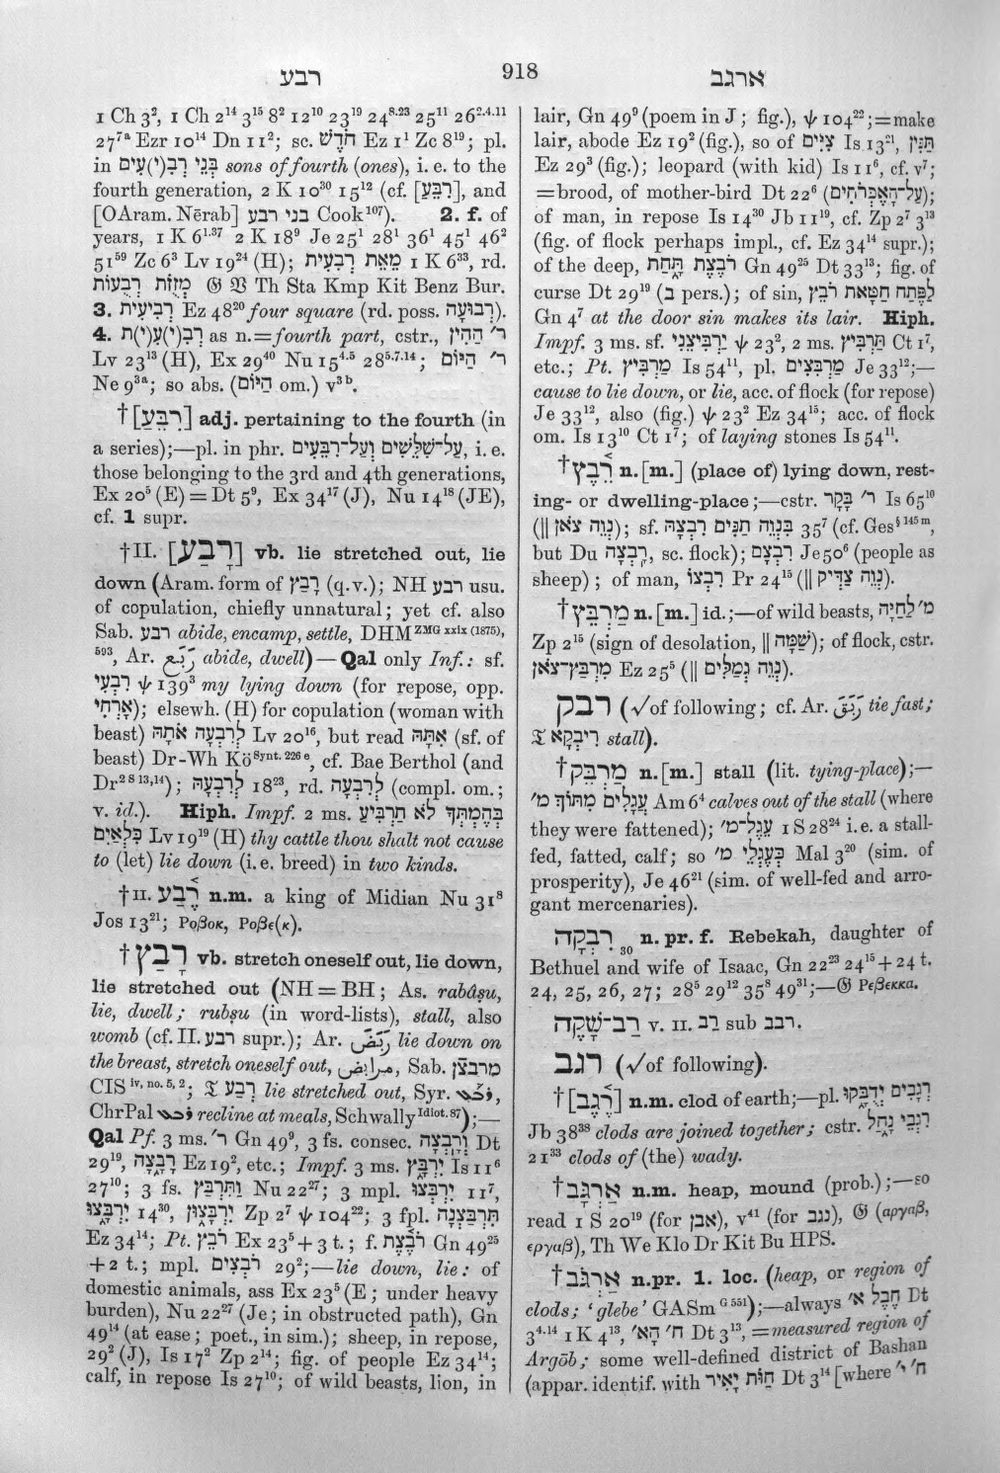 רבע
918
ארגב
1 Ch 3², 1 Ch 2¹⁴ 3¹⁵ 8² 12¹⁰ 23¹⁹ 24⁸·²³ 25¹¹ 26²·⁴·¹¹
27⁷ᵃ Ezr 10¹⁴ Dn 11²; sc. חֹדֶשׁ Ez 1¹ Zc 8¹⁹; pl.
in בְּנֵי רְבִ(י)עִים sons of fourth (ones), i. e. to the
fourth generation, 2 K 10³⁰ 15¹² (cf. [רִבֵּעַ], and
[OAram. Nērab] בני רבע Cook¹⁰⁷). 2. f. of
years, 1 K 6¹·³⁷ 2 K 18⁹ Je 25¹ 28¹ 36¹ 45¹ 46²
51⁵⁹ Zc 6³ Lv 19²⁴ (H); מֵאֵת רְבִעִית 1 K 6³³, rd.
מְזֻזוֹת רְבֻעוֹת 𝔊 𝔙 Th Sta Kmp Kit Benz Bur.
3. רְבִיעִית Ez 48²⁰ four square (rd. poss. רְבוּעָה).
4. רְבִ(י)עִ(י)ת as n.=fourth part, cstr., ר׳ הַהִין
Lv 23¹³ (H), Ex 29⁴⁰ Nu 15⁴·⁵ 28⁵·⁷·¹⁴; ר׳ הַיּוֹם
Ne 9³ᵃ; so abs. (הַיּוֹם om.) v³ᵇ.
†[רִבֵּעַ] adj. pertaining to the fourth (in
a series);—pl. in phr. עַל־שִׁלֵּשִׁים וְעַל־רִבֵּעִים, i. e.
those belonging to the 3rd and 4th generations,
Ex 20⁵ (E) = Dt 5⁹, Ex 34¹⁷ (J), Nu 14¹⁸ (JE),
cf. 1 supr.
†II. [רָבַע] vb. lie stretched out, lie
down (Aram. form of רָבַץ (q.v.); NH רבע usu.
of copulation, chiefly unnatural; yet cf. also
Sab. רבע abide, encamp, settle, DHM ZMG xxix (1875),
⁵⁹³, Ar. رَبَعَ abide, dwell)—Qal only Inf.: sf.
רִבְעִי ψ 139³ my lying down (for repose, opp.
אָרְחִי); elsewh. (H) for copulation (woman with
beast) לְרִבְעָה אֹתָהּ Lv 20¹⁶, but read אִתָּהּ (sf. of
beast) Dr-Wh Kö Synt. 226 e, cf. Bae Berthol (and
Dr² S 13,14); לְרִבְעָהּ 18²³, rd. לְרִבְעָה (compl. om.;
v. id.). Hiph. Impf. 2 ms. בְּהֶמְתְּךָ לֹא תַרְבִּיעַ
כִּלְאַיִם Lv 19¹⁹ (H) thy cattle thou shalt not cause
to (let) lie down (i. e. breed) in two kinds.
†II. רֶבַע n.m. a king of Midian Nu 31⁸
Jos 13²¹; Ροβοκ, Ροβε(κ).
†רָבַץ vb. stretch oneself out, lie down,
lie stretched out (NH = BH; As. rabâṣu,
lie, dwell; rubṣu (in word-lists), stall, also
womb (cf. II. רבע supr.); Ar. رَبَضَ lie down on
the breast, stretch oneself out, مرابض, Sab. מרבצֿן
CIS iv, no. 5, 2; 𝔗 רְבַע lie stretched out, Syr. ܪܒܥ,
ChrPal ܪܒܥ recline at meals, Schwally Idiot. 87);—
Qal Pf. 3 ms. ר׳ Gn 49⁹, 3 fs. consec. וְרָבְצָה Dt
29¹⁹, רָבָצָה Ez 19², etc.; Impf. 3 ms. יִרְבָּץ Is 11⁶
27¹⁰; 3 fs. וַתִּרְבַּץ Nu 22²⁷; 3 mpl. יִרְבְּצוּ 11⁷,
יִרְבָּצוּ 14³⁰, יִרְבָּצוּן Zp 2⁷ ψ 104²²; 3 fpl. תִּרְבַּצְנָה
Ez 34¹⁴; Pt. רֹבֵץ Ex 23⁵ + 3 t.; f. רֹבֶצֶת Gn 49²⁵
+ 2 t.; mpl. רֹבְצִים 29²;—lie down, lie: of
domestic animals, ass Ex 23⁵ (E; under heavy
burden), Nu 22²⁷ (Je; in obstructed path), Gn
49¹⁴ (at ease; poet., in sim.); sheep, in repose,
29² (J), Is 17² Zp 2¹⁴; fig. of people Ez 34¹⁴;
calf, in repose Is 27¹⁰; of wild beasts, lion, in
lair, Gn 49⁹ (poem in J; fig.), ψ 104²²;=make
lair, abode Ez 19² (fig.), so of צִיִּים Is 13²¹, תַּנִּין
Ez 29³ (fig.); leopard (with kid) Is 11⁶, cf. v⁷;
=brood, of mother-bird Dt 22⁶ (עַל־הָאֶפְרֹחִים);
of man, in repose Is 14³⁰ Jb 11¹⁹, cf. Zp 2⁷ 3¹³
(fig. of flock perhaps impl., cf. Ez 34¹⁴ supr.);
of the deep, רֹבֶצֶת תָּחַת Gn 49²⁵ Dt 33¹³; fig. of
curse Dt 29¹⁹ (בְּ pers.); of sin, לַפֶּתַח חַטָּאת רֹבֵץ
Gn 4⁷ at the door sin makes its lair. Hiph.
Impf. 3 ms. sf. יַרְבִּיצֵנִי ψ 23², 2 ms. תַּרְבִּיץ Ct 1⁷,
etc.; Pt. מַרְבִּיץ Is 54¹¹, pl. מַרְבִּצִים Je 33¹²;—
cause to lie down, or lie, acc. of flock (for repose)
Je 33¹², also (fig.) ψ 23² Ez 34¹⁵; acc. of flock
om. Is 13¹⁰ Ct 1⁷; of laying stones Is 54¹¹.
†רֵבֶץ n.[m.] (place of) lying down, rest-
ing- or dwelling-place;—cstr. ר׳ בָּקָר Is 65¹⁰
(‖ נְוֵה צֹאן); sf. בִּנְוֵה תַנִּים רִבְצָהּ 35⁷ (cf. Ges§ ¹⁴⁵ᵐ,
but Du רִבְצָהּ, sc. flock); רִבְצָם Je 50⁶ (people as
sheep); of man, רִבְצוֹ Pr 24¹⁵ (‖ נְוֵה צַדִּיק).
†מַרְבֵּץ n.[m.] id.;—of wild beasts, מ׳ לַחַיָּה
Zp 2¹⁵ (sign of desolation, ‖ שַׁמָּה); of flock, cstr.
מִרְבַּץ־צֹאן Ez 25⁵ (‖ נְוֵה גְמַלִּים).
רבק (√ of following; cf. Ar. رَبَقَ tie fast;
𝔗 רִיבְקָא stall).
†מַרְבֵּק n.[m.] stall (lit. tying-place);—
עֲגָלִים מִתּוֹךְ מ׳ Am 6⁴ calves out of the stall (where
they were fattened); עֵגֶל־מ׳ 1 S 28²⁴ i. e. a stall-
fed, fatted, calf; so כְּעֶגְלֵי מ׳ Mal 3²⁰ (sim. of
prosperity), Je 46²¹ (sim. of well-fed and arro-
gant mercenaries).
רִבְקָה ₃₀ n. pr. f. Rebekah, daughter of
Bethuel and wife of Isaac, Gn 22²³ 24¹⁵ + 24 t.
24, 25, 26, 27; 28⁵ 29¹² 35⁸ 49³¹;—𝔊 Ρεβεκκα.
רַב־שָׁקֵה v. II. רַב sub רבב.
רגב (√ of following).
†[רֶגֶב] n.m. clod of earth;—pl. רְגָבִים יְדֻבָּקוּ
Jb 38³⁸ clods are joined together; cstr. רִגְבֵי נָחַל
21³³ clods of (the) wady.
†אַרְגָּב n.m. heap, mound (prob.);—so
read 1 S 20¹⁹ (for אבן), v⁴¹ (for נגב), 𝔊 (αργαβ,
εργαβ), Th We Klo Dr Kit Bu HPS.
†אַרְגֹּב n.pr. 1. loc. (heap, or region of
clods; ‘glebe’ GASm G 551);—always חֶבֶל א׳ Dt
3⁴·¹⁴ 1 K 4¹³, ח׳ הָא׳ Dt 3¹³, =measured region of
Argōb; some well-defined district of Bashan
(appar. identif. with חַוֹּת יָאִיר Dt 3¹⁴ [where ח׳ י׳